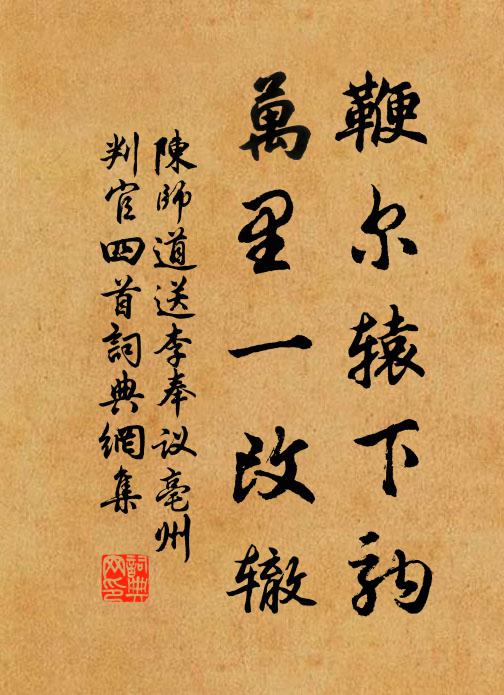 鞭尔辕下驹
萬里一改辙
陳師道送李奉议亳州
判官四首詞典網集
詞典网印